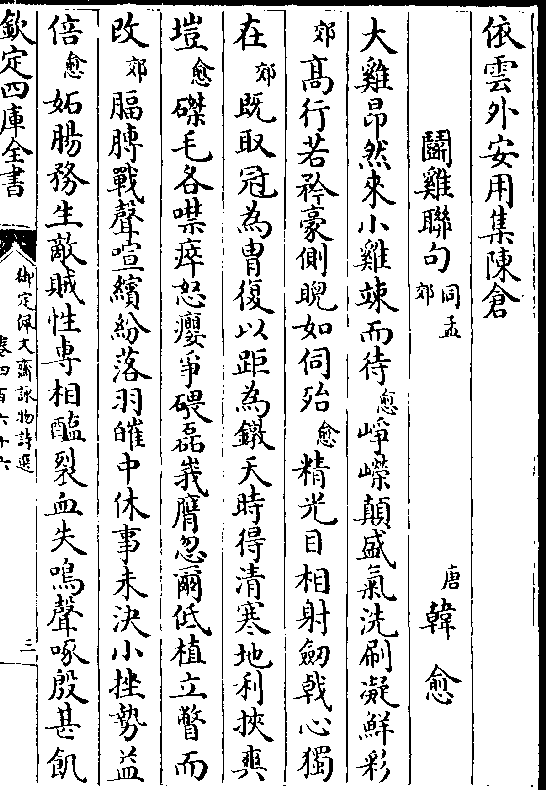 依雲外安用集陳倉
鬬雞聯句同孟郊 唐 韓愈
大雞昂然來小雞竦而待愈崢嶸顛盛氣洗刷凝鮮彩
郊髙行若矜豪側睨如伺殆愈精光目相射劒戟心獨
在郊既取冠為胄復以距為鐓天時得清寒地利挾爽
塏愈磔毛各噤瘁怒癭爭碨磊峩膺忽爾低植立瞥而
改郊腷膊戰聲喧繽紛落羽皠中休事未決小挫勢益
倍愈妬腸務生敵賊性専相醢裂血失鳴聲啄殷甚飢
欽定四庫全書
御定佩文齋詠物詩選
卷四百六十六
三